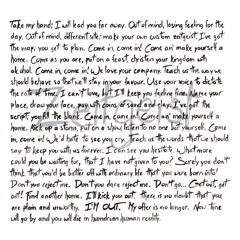 Take my hand; I will lead you far away. Out of mind, losing feeling for the
day. Out of mind, different state; make your own custom zeitgeist. I've got
the map; you set to plan. Come in, come in! make yourself a
home. Come as you are, put on a feast; christen your kingdom with
alcohol. Come in, come in! We love your company. Teach us the way we
should behave so that we'll stay in your favour. Use your voice to dictate
the rate of time. I can't love, but I'll keep you feeling fine. Leave your
place, draw your face, pay with coins of sand and clay. I've got the
script, you fill the blank. Come in, come in! Come on! make yourself a
home. Pick up a stone, put on a show, listen to no one but yourself. Come
in, come in! We'd hate to see you cry. Teach us the words that we should
say to keep you with us forever. I can see you hesitate. What more
could you be waiting for, that I have not given to you? Surely you don't
think that you'd be better off with ordinary life that you were born into!
Don't you reject me. Don't you dare reject me. Don't go... Get out, get
out! Find another home. I'll kick you out. there is no doubt that you
are plain and unworthy. I'M OUT. My offer is no longer. Now time
will go by and you will die in humdrum human reality.